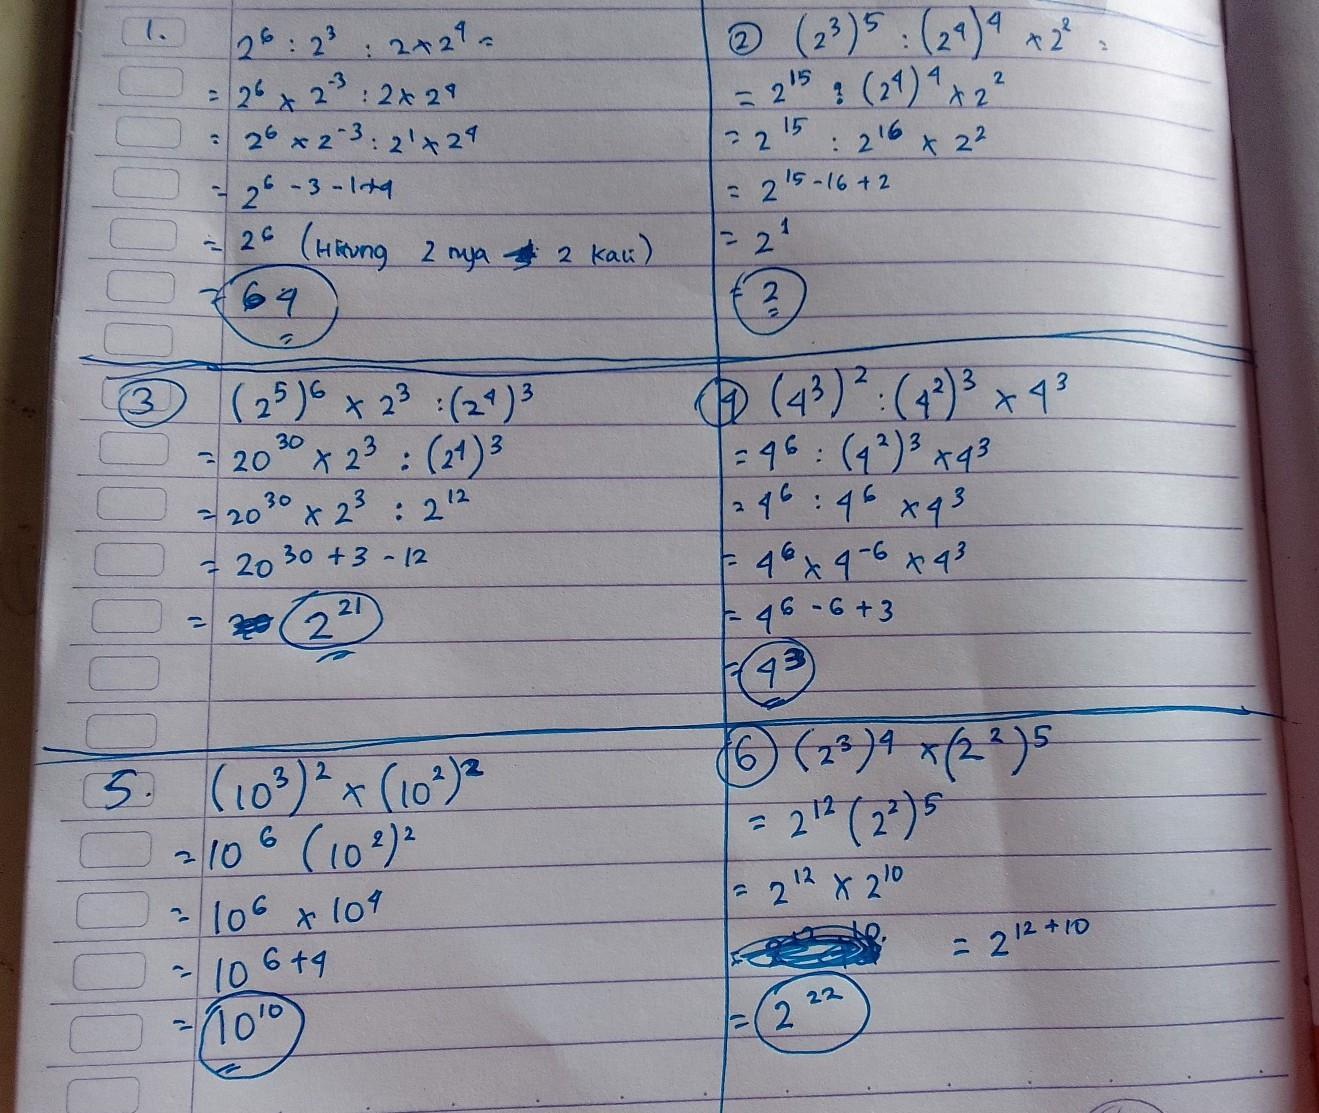 1. 2⁶ : 2³ : 2 x 2⁴ =
= 2⁶ x 2⁻³ : 2 x 2⁴
= 2⁶ x 2⁻³ : 2¹ x 2⁴
= 2⁶ ⁻ ³ ⁻ ¹ ⁺ ⁴
= 2⁶ (Hitung 2 nya 2 kali)
= 64
② (2³)⁵ : (2⁴)⁴ x 2² =
= 2¹⁵ : (2⁴)⁴ x 2²
= 2¹⁵ : 2¹⁶ x 2²
= 2¹⁵⁻¹⁶⁺²
= 2¹
= 2
③ (2⁵)⁶ x 2³ : (2⁴)³
= 20³⁰ x 2³ : (2⁴)³
= 20³⁰ x 2³ : 2¹²
= 20³⁰⁺³⁻¹²
= 2²¹
④ (4³)² : (4²)³ x 4³
= 4⁶ : (4²)³ x 4³
= 4⁶ : 4⁶ x 4³
= 4⁶ x 4⁻⁶ x 4³
= 4⁶⁻⁶⁺³
= 4³
5. (10³)² x (10²)²
= 10⁶ (10²)²
= 10⁶ x 10⁴
= 10⁶⁺⁴
= 10¹⁰
⑥ (2³)⁴ x (2²)⁵
= 2¹² (2²)⁵
= 2¹² x 2¹⁰
= 2¹²⁺¹⁰
= 2²²